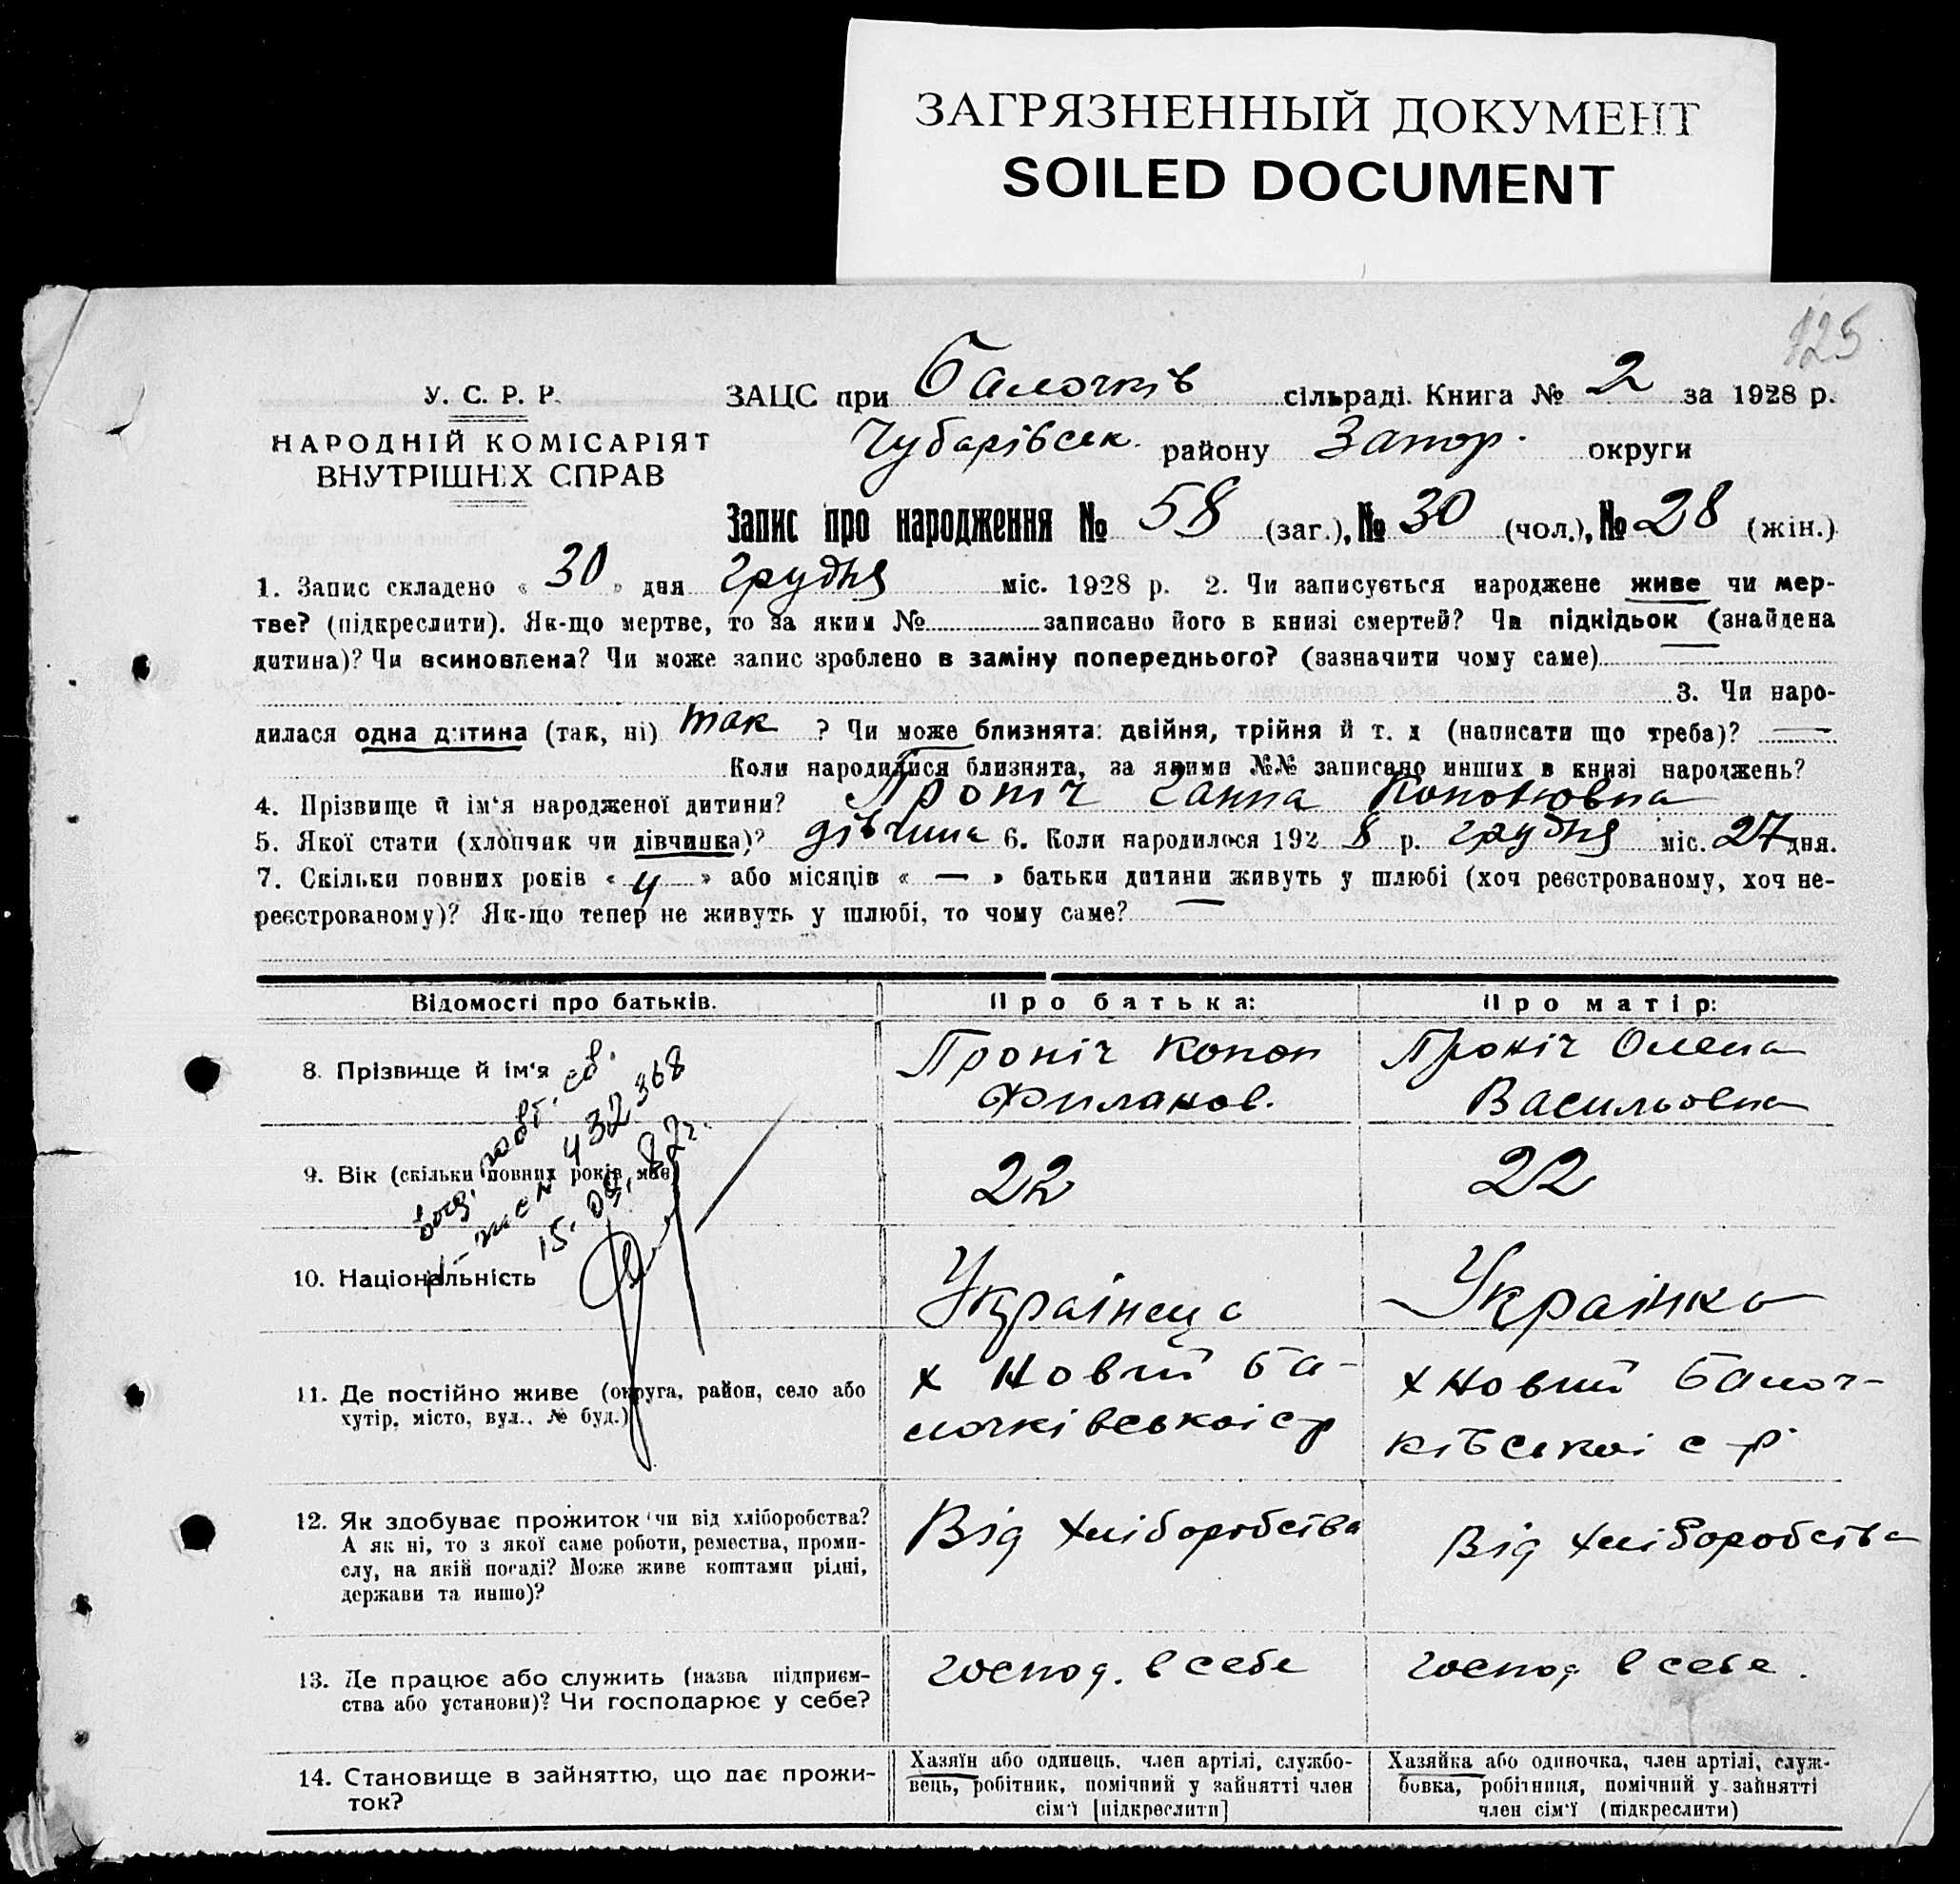 ЗАГРЯЗНЕННЫЙ ДОКУМЕНТ
SOILED DOCUMENT
125
У. С. Р. Р.
НАРОДНІЙ КОМІСАРІЯТ
ВНУТРІШНІХ СПРАВ
ЗАЦС при Балочків сільраді. Книга № 2 за 1928 р.
Чубарівськ. району Запор. округи
Запис про народження № 58 (заг.), № 30 (чол.), № 28 (жін.)
1. Запис складено « 30 » дня грудня міс. 1928 р. 2. Чи записується народжене живе чи мер-
тве? (підкреслити). Як-що мертве, то за яким № записано його в книзі смертей? Чи підкідьок (знайдена
дитина)? Чи всиновлена? Чи може запис зроблено в заміну попереднього? (зазначити чому саме)
3. Чи наро-
дилася одна дитина (так, ні) так ? Чи може близнята: двійня, трійня й т. д (написати що треба)? —
Коли народилися близнята, за якими №№ записано инших в книзі народжень?
4. Прізвище й ім'я народженої дитини? Проніч Ганна Кононовна
5. Якої стати (хлопчик чи дівчинка)? дівчина 6. Коли народилося 1928 р. грудня міс. 27 дня.
7. Скільки повних років « 4 » або місяців « — » батьки дитини живуть у шлюбі (хоч реєстрованому, хоч не-
реєстрованому)? Як-що тепер не живуть у шлюбі, то чому саме? —
Відомості про батьків. Про батька: Про матір:
8. Прізвище й ім'я Проніч Конон Проніч Олена
Филанов. Васильовна
9. Вік (скільки повних років має) 22 22
вид.
432368
15. 09. 87г.
10. Національність Українець Українка
11. Де постійно живе (округа, район, село або
хутір, місто, вул.. № буд.)
х Новий Ба-
лочківськоі с р
х Новий Балоч-
ківськоі с р
12. Як здобуває прожиток чи від хліборобства?
А як ні, то з якої саме роботи, ремества, проми-
слу, на якій посаді? Може живе коштами рідні,
держави та инше)?
Від хліборобства Від хліборобства
13. Де працює або служить (назва підприєм-
ства або установи)? Чи господарює у себе?
господ. в себе господ в себе.
14. Становище в зайняттю, що дає прожи-
ток?
Хазяїн або одинець, член артілі, службо-
вець, робітник, помічний у зайнятті член
сім'ї [підкреслити]
Хазяйка або одиночка, член артілі, служ-
бовка, робітниця, помічний у зайнятті
член сім'ї (підкреслити)